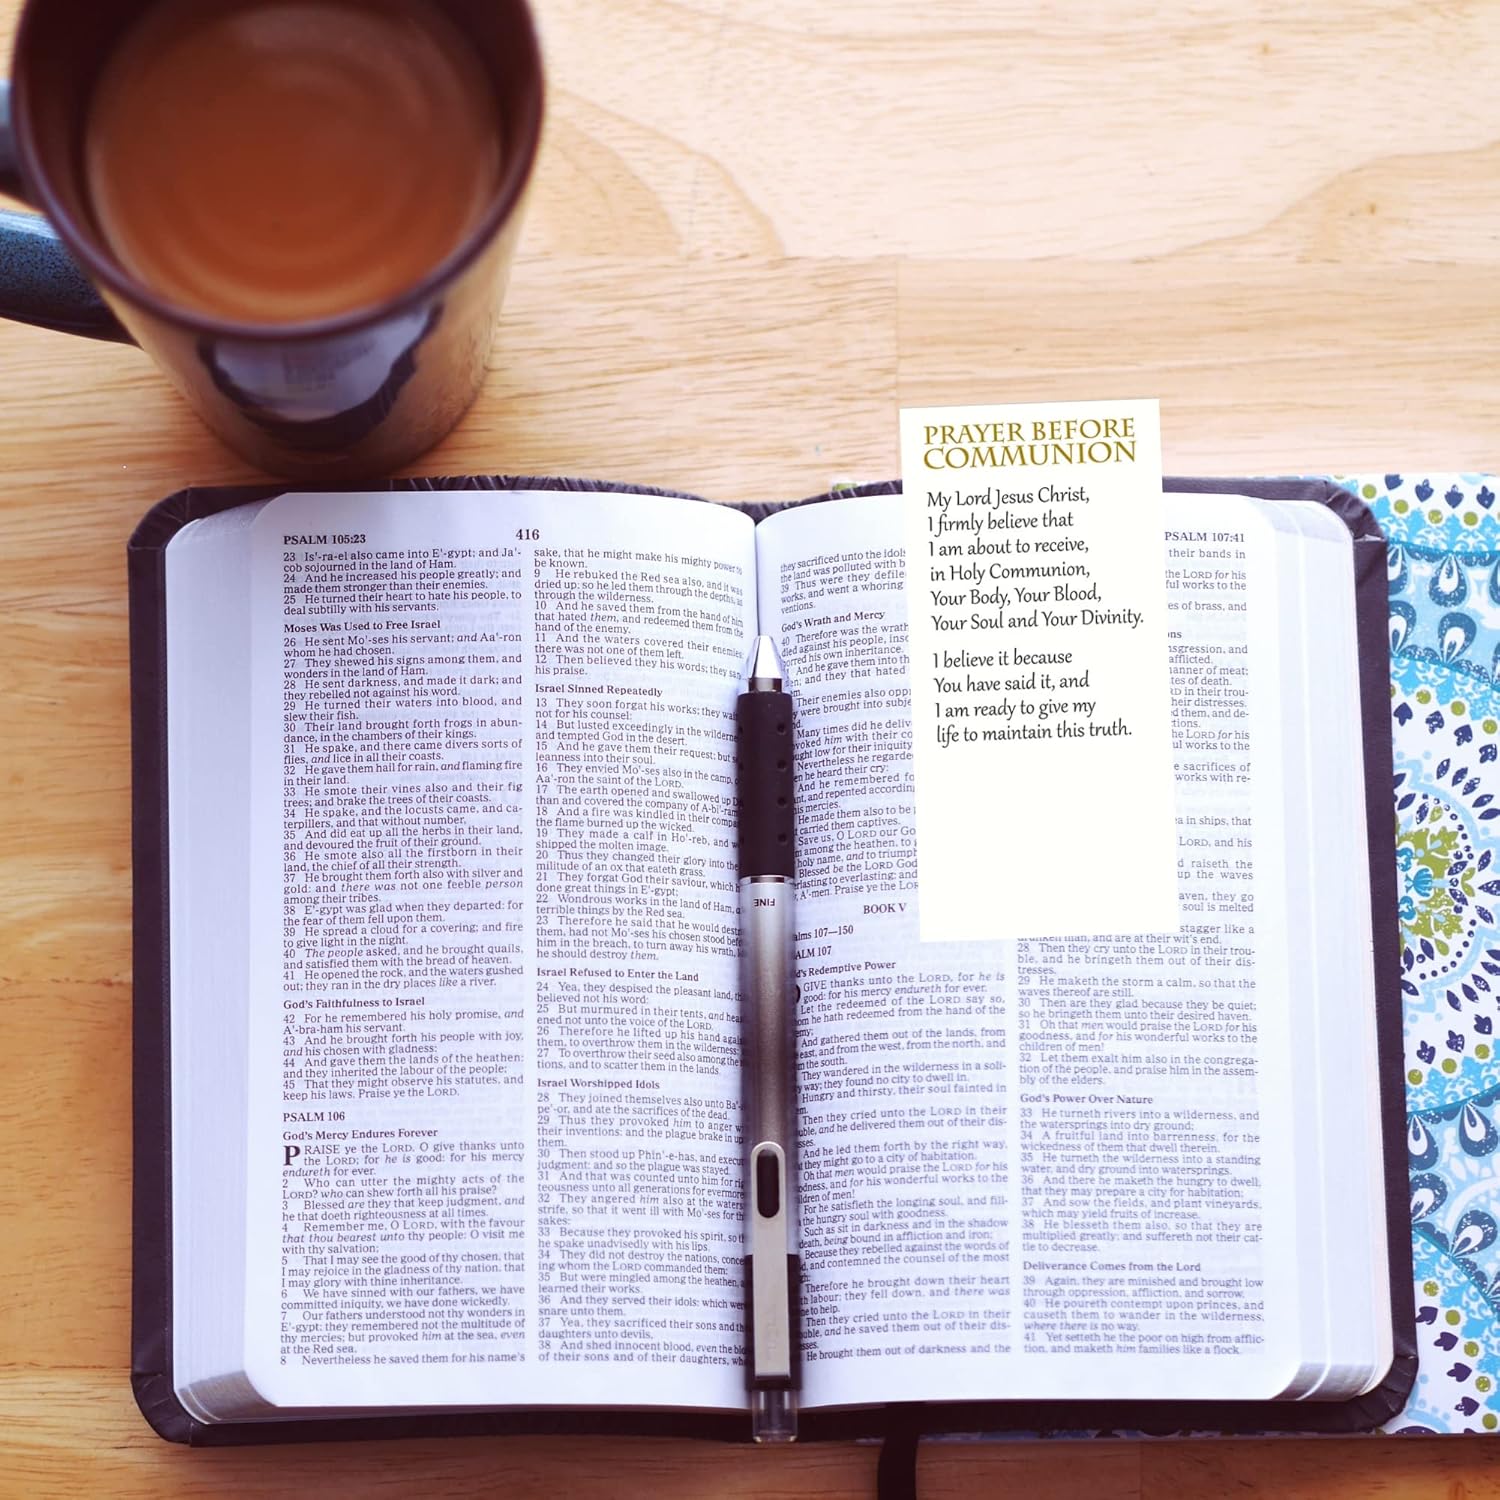 PSALM 105:23
416
23 Is'-ra-el also came into E'-gypt; and Ja'-
cob sojourned in the land of Ham.
24 And he increased his people greatly; and
made them stronger than their enemies.
25 He turned their heart to hate his people, to
deal subtilly with his servants.
Moses Was Used to Free Israel
26 He sent Mo'-ses his servant; and Aa'-ron
whom he had chosen.
27 They shewed his signs among them, and
wonders in the land of Ham.
28 He sent darkness, and made it dark; and
they rebelled not against his word.
29 He turned their waters into blood, and
slew their fish.
30 Their land brought forth frogs in abun-
dance, in the chambers of their kings.
31 He spake, and there came divers sorts of
flies, and lice in all their coasts.
32 He gave them hail for rain, and flaming fire
in their land.
33 He smote their vines also and their fig
trees; and brake the trees of their coasts.
34 He spake, and the locusts came, and ca-
terpillers, and that without number,
35 And did eat up all the herbs in their land,
and devoured the fruit of their ground.
36 He smote also all the firstborn in their
land, the chief of all their strength.
37 He brought them forth also with silver and
gold: and there was not one feeble person
among their tribes.
38 E'-gypt was glad when they departed: for
the fear of them fell upon them.
39 He spread a cloud for a covering; and fire
to give light in the night.
40 The people asked, and he brought quails,
and satisfied them with the bread of heaven.
41 He opened the rock, and the waters gushed
out; they ran in the dry places like a river.
God's Faithfulness to Israel
42 For he remembered his holy promise, and
A'-bra-ham his servant.
43 And he brought forth his people with joy,
and his chosen with gladness:
44 And gave them the lands of the heathen:
and they inherited the labour of the people;
45 That they might observe his statutes, and
keep his laws. Praise ye the LORD.
PSALM 106
God's Mercy Endures Forever
PRAISE ye the LORD. O give thanks unto
the LORD; for he is good: for his mercy
endureth for ever.
2 Who can utter the mighty acts of the
LORD? who can shew forth all his praise?
3 Blessed are they that keep judgment, and
he that doeth righteousness at all times.
4 Remember me, O LORD, with the favour
that thou bearest unto thy people: O visit me
with thy salvation;
5 That I may see the good of thy chosen, that
I may rejoice in the gladness of thy nation, that
I may glory with thine inheritance.
6 We have sinned with our fathers, we have
committed iniquity, we have done wickedly.
7 Our fathers understood not thy wonders in
E'-gypt; they remembered not the multitude of
thy mercies; but provoked him at the sea, even
at the Red sea.
8 Nevertheless he saved them for his name's
sake, that he might make his mighty power to
be known.
9 He rebuked the Red sea also, and it was
dried up: so he led them through the depths, as
through the wilderness.
10 And he saved them from the hand of him
that hated them, and redeemed them from the
hand of the enemy.
11 And the waters covered their enemies:
there was not one of them left.
12 Then believed they his words; they sang
his praise.
Israel Sinned Repeatedly
13 They soon forgat his works; they
not for his counsel:
14 But lusted exceedingly in the
and tempted God in the desert.
15 And he gave them their request; but
leanness into their soul.
16 They envied Mo'-ses also in the camp,
Aa'-ron the saint of the LORD.
17 The earth opened and swallowed up
than and covered the company of
18 And a fire was kindled in their
the flame burned up the wicked.
19 They made a calf in Ho'-reb, and
shipped the molten image.
20 Thus they changed their glory into the
militude of an ox that eateth grass.
21 They forgat God their saviour, which
done great things in E'-gypt;
22 Wondrous works in the land of Ham,
terrible things by the Red sea.
23 Therefore he said that he would
them, had not Mo'-ses his chosen stood
him in the breach, to turn away his wrath,
he should destroy them.
Israel Refused to Enter the Land
24 Yea, they despised the pleasant land,
believed not his word:
25 But murmured in their tents, and
ened not unto the voice of the LORD.
26 Therefore he lifted up his hand
them, to overthrow them in the wilderness:
27 To overthrow their seed also among the
tions, and to scatter them in the lands.
Israel Worshipped Idols
28 They joined themselves also unto
pe'-or, and ate the sacrifices of the dead.
29 Thus they provoked him to anger
their inventions: and the plague brake in
them.
30 Then stood up Phin'-e-has, and
judgment: and so the plague was stayed.
31 And that was counted unto him for
teousness unto all generations for evermore.
32 They angered him also at the waters
strife, so that it went ill with Mo'-ses for
sakes:
33 Because they provoked his spirit, so
he spake unadvisedly with his lips.
34 They did not destroy the nations,
ing whom the LORD commanded them:
35 But were mingled among the heathen,
learned their works.
36 And they served their idols: which
snare unto them.
37 Yea, they sacrificed their sons and
daughters unto devils,
38 And shed innocent blood, even the
of their sons and of their daughters,
FINE
they sacrificed unto the idols
the land was polluted with
39 Thus were they
works, and went a whoring
ventions.
God's Wrath and Mercy
40 Therefore was the wrath
against his people,
his own inheritance.
And he gave them into
and they that hated
Their enemies also
were brought into
Many times did he
him with their
low for their iniquity
Nevertheless he
he heard their cry:
And he remembered
and repented
his mercies.
He made them also to be
carried them captives.
Save us, O LORD our
among the heathen, to
holy name, and to
Blessed be the LORD God
to everlasting: and
A'-men. Praise ye the
BOOK V
107—150
107
Redemptive Power
GIVE thanks unto the LORD, for he is
good: for his mercy endureth for ever.
Let the redeemed of the LORD say so,
he hath redeemed from the hand of the
And gathered them out of the lands, from
east, and from the west, from the north, and
the south.
They wandered in the wilderness in a soli-
way; they found no city to dwell in.
Hungry and thirsty, their soul fainted in
Then they cried unto the LORD in their
and he delivered them out of their dis-
And he led them forth by the right way,
they might go to a city of habitation.
Oh that men would praise the LORD for his
and for his wonderful works to the
of men!
For he satisfieth the longing soul, and fill-
the hungry soul with goodness.
Such as sit in darkness and in the shadow
death, being bound in affliction and iron;
Because they rebelled against the words of
and contemned the counsel of the most
Therefore he brought down their heart
labour; they fell down, and there was
to help.
Then they cried unto the LORD in their
and he saved them out of their dis-
He brought them out of darkness and the
PRAYER BEFORE
COMMUNION
My Lord Jesus Christ,
I firmly believe that
I am about to receive,
in Holy Communion,
Your Body, Your Blood,
Your Soul and Your Divinity.
I believe it because
You have said it, and
I am ready to give my
life to maintain this truth.
PSALM 107:41
their bands in
the LORD for his
works to the
of brass, and
and
afflicted.
manner of meat;
of death.
in their trou-
their distresses.
them, and de-
the LORD for his
works to the
sacrifices of
works with re-
in ships, that
LORD, and his
raiseth the
up the waves
they go
soul is melted
stagger like a
drunken man, and are at their wit's end.
28 Then they cry unto the LORD in their trou-
ble, and he bringeth them out of their dis-
tresses.
29 He maketh the storm a calm, so that the
waves thereof are still.
30 Then are they glad because they be quiet;
so he bringeth them unto their desired haven.
31 Oh that men would praise the LORD for his
goodness, and for his wonderful works to the
children of men!
32 Let them exalt him also in the congrega-
tion of the people, and praise him in the assem-
bly of the elders.
God's Power Over Nature
33 He turneth rivers into a wilderness, and
the watersprings into dry ground;
34 A fruitful land into barrenness, for the
wickedness of them that dwell therein.
35 He turneth the wilderness into a standing
water, and dry ground into watersprings.
36 And there he maketh the hungry to dwell,
that they may prepare a city for habitation;
37 And sow the fields, and plant vineyards,
which may yield fruits of increase.
38 He blesseth them also, so that they are
multiplied greatly; and suffereth not their cat-
tle to decrease.
Deliverance Comes from the Lord
39 Again, they are minished and brought low
through oppression, affliction, and sorrow.
40 He poureth contempt upon princes, and
causeth them to wander in the wilderness,
where there is no way.
41 Yet setteth he the poor on high from afflic-
tion, and maketh him families like a flock.